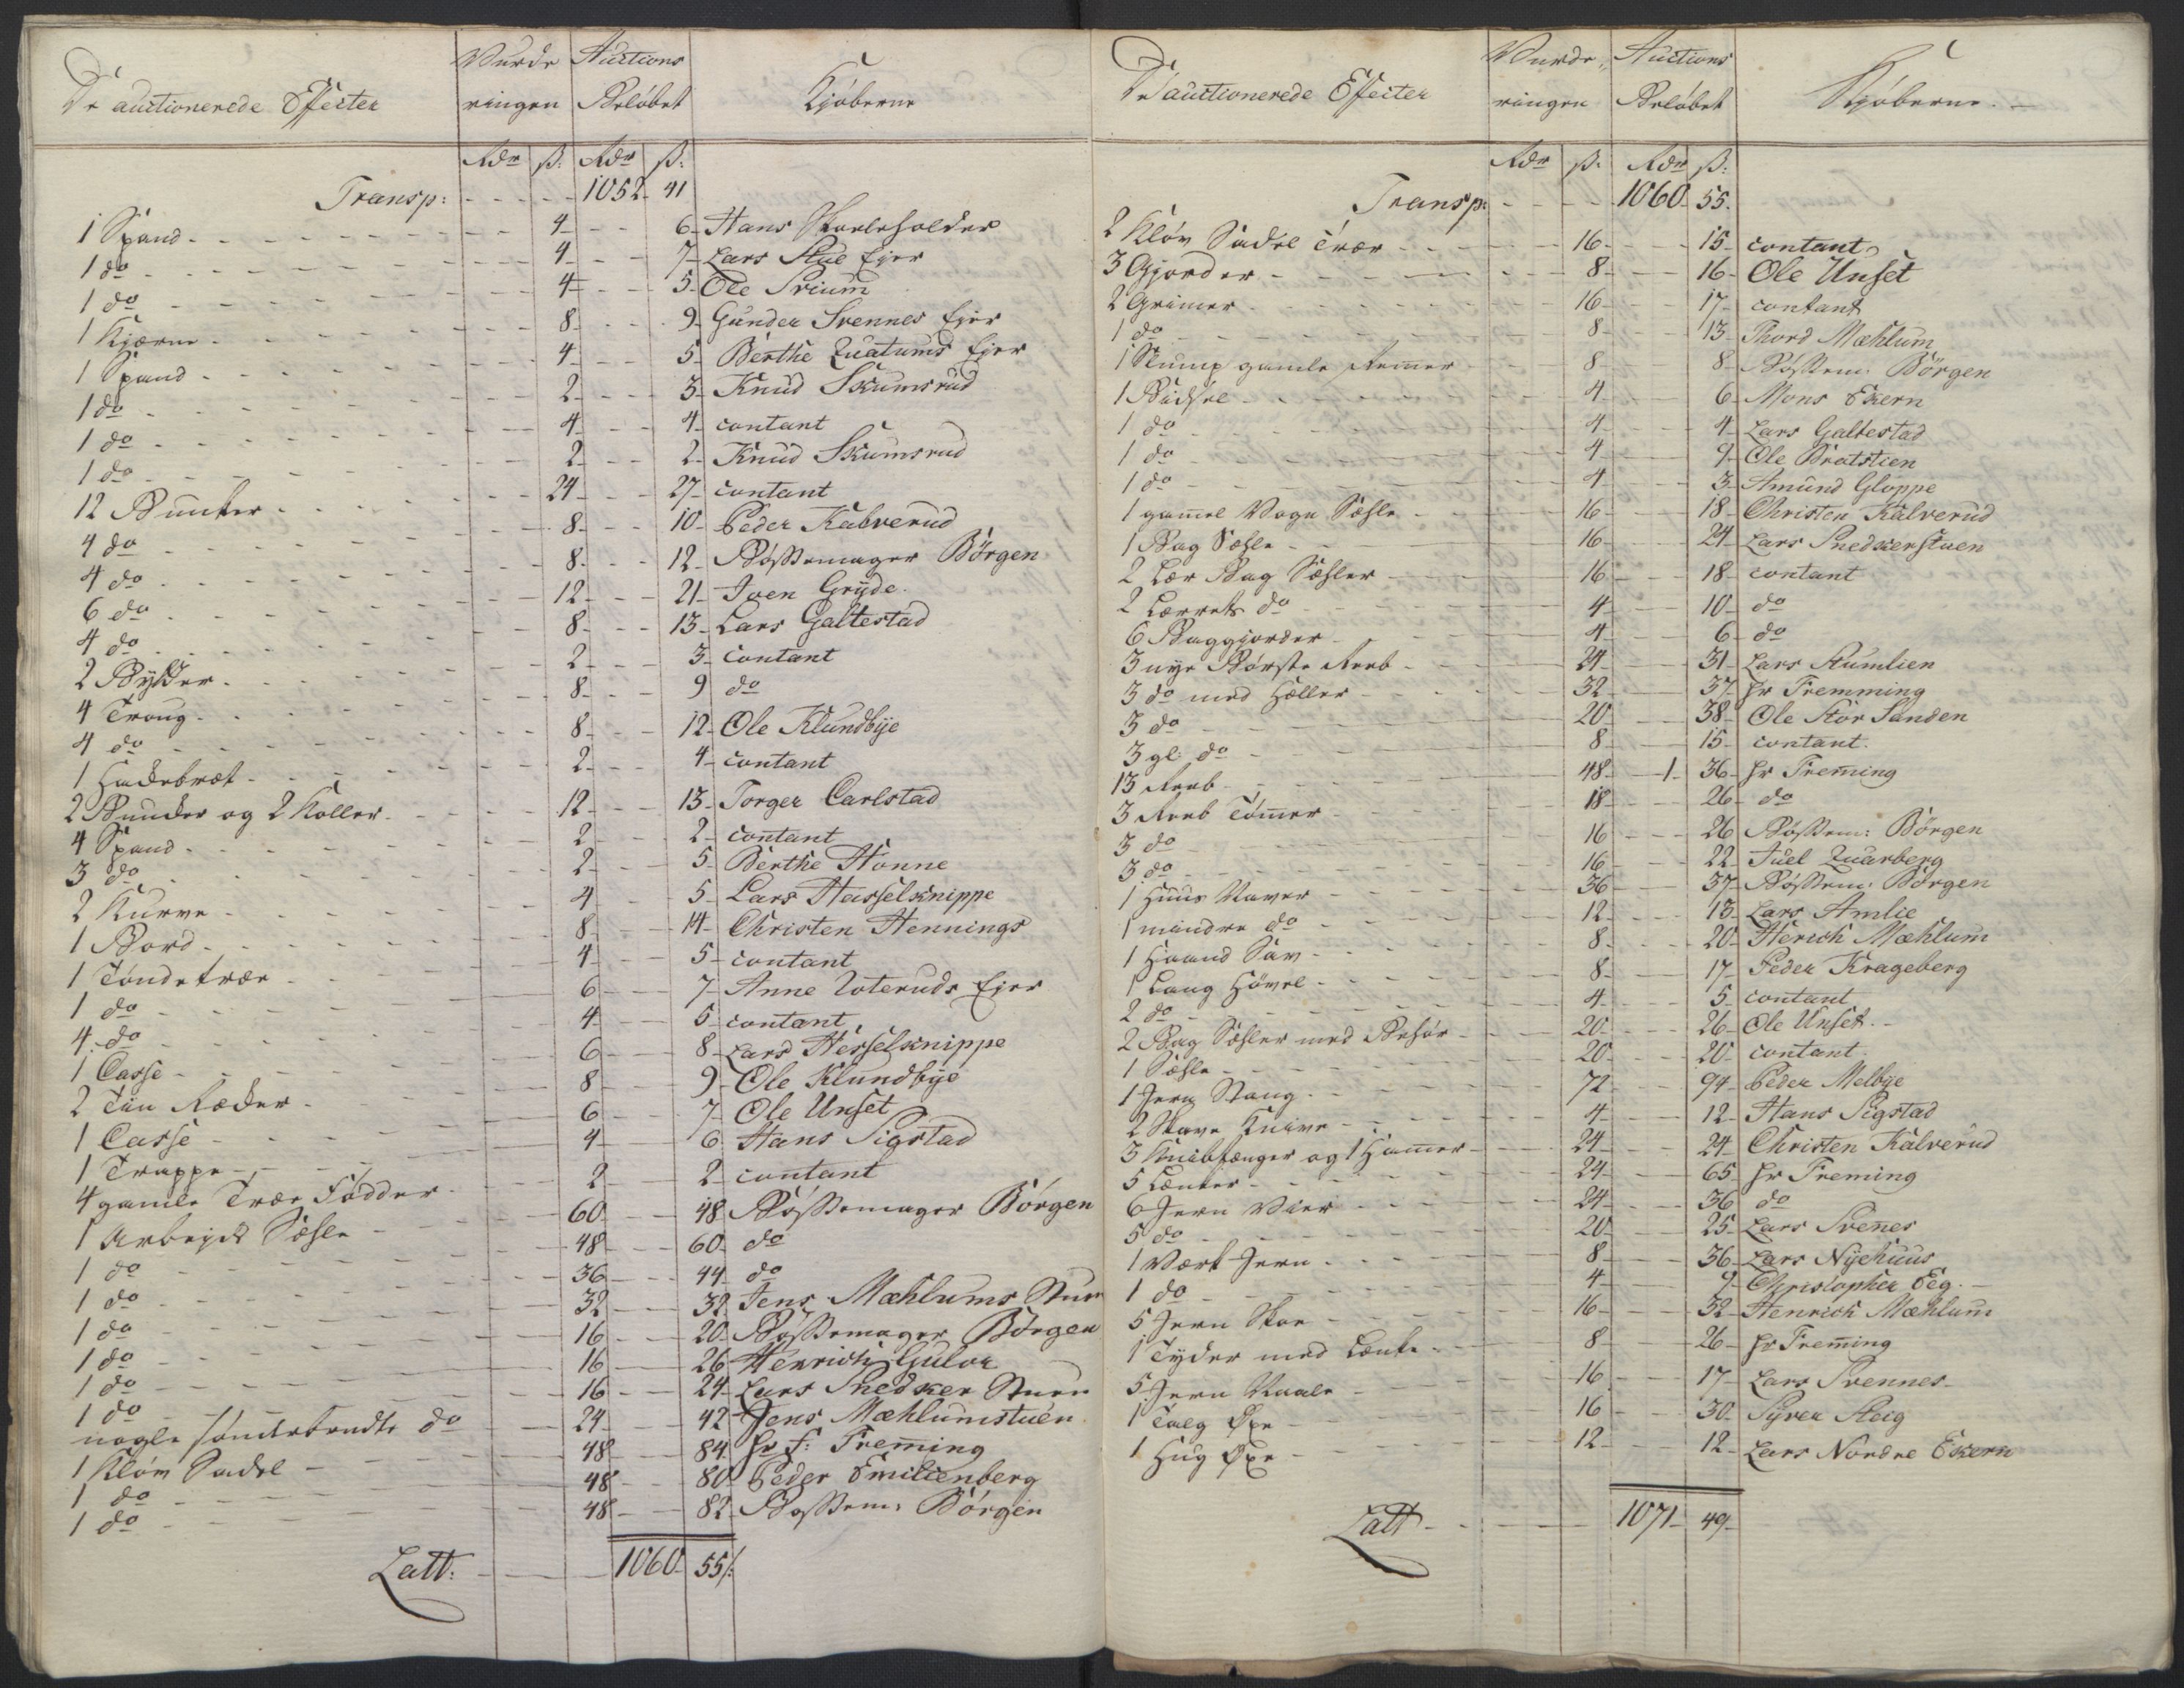 De auctionerede Effecter | Vurderingen | Auctions Beløbet | Kjøberne
Rdr ß: Rdr ß:
Transp: 1052 - 41
1 Spand - 4 - 6 - Hans Skoleholder
1 do - 4 - 7 - Lars Stue Ejer
1 do - 4 - 5 - Ole Svium
1 Kjærne - 8 - 9 - Gunder Svennes Ejer
1 Spand - 4 - 5 - Berthe Quatums Ejer
1 do - 2 - 3 - Knud Skumsrud
1 do - 4 - 4 - contant
1 do - 2 - 2 - Knud Skumsrud
12 Bunker - 24 - 27 - contant
4 do - 8 - 10 - Peder Kalverud
4 do - 8 - 12 - Bøssemager Börgen
6 do - 12 - 21 - Joen Gryde
4 do - 8 - 13 - Lars Galtestad
2 Bytter - 2 - 3 - contant
4 Troug - 8 - 9 do
4 do - 8 - 12 - Ole Klundbye
1 Hakkebræt - 2 - 4 - contant
2 Bunker og 2 Koller - 12 - 13 - Torger Carlstad
4 Spand - 2 - 2 - contant
3 do - 2 - 5 - Berthe Honne
2 Kurve - 4 - 5 - Lars Hasselknippe
1 Bord - 8 - 14 - Christen Hennings
1 Tøndetræe - 4 - 5 - contant
1 do - 6 - 7 - Anne Loteruds Ejer
4 do - 4 - 5 - contant
1 Casse - 6 - 8 - Lars Hesselknippe
2 Tiin - 8 - 9 - Ole Klundbye
1 Casse - 6 - 7 - Ole Unset
1 Trappe - 4 - 6 - Hans Sigstad
4 gamle Træe Fødder - 2 - 2 - contant
1 Arbeids Sæhle - 60 - 48 Bøssemager Börgen
1 do - 48 - 60 do
1 do - 36 - 44 do
1 do - 32 - 32 Jens Mæhlums Stuen
1 do - 16 - 20 Bøssemager Börgen
1 do - 16 - 26 Henrich Gulor
1 do - 16 - 24 Lars Snedker Stuen
nogle do - 24 - 42 Jens Mæhlumstuen
1 Kløv Sadel - 48 - 84 Hr F: Fremming
1 do - 48 - 80 Peder Smilienberg
1 do - 48 - 82 Bøssem: Börgen
Latt: 1060 - 55 ß
De auctionerede Effecter | Vurderingen | Auctions Beløbet | Kjøberne
Rdr ß: Rdr ß:
Transp: 1060 - 55
2 Kløv Sadel Træer - 16 - 15 - contant
3 Gjorder - 8 - 16 - Ole Unset
2 Grimer - 16 - 17 - contant
1 do - 8 - 13 - Thord Mæhlum
1 Stump gamle Remmer - 8 - 8 - Bøssem: Börgen
1 Bidsel - 4 - 6 - Mons Ekern
1 do - 4 - 4 - Lars Galtestad
1 do - 4 - 9 - Ole Bratstien
1 do - 4 - 3 - Amund Gloppe
1 gammel Vogn Sæhle - 16 - 18 - Christen Kalverud
1 Bag Sæhle - 16 - 24 - Lars Snedkerstuen
2 Lær Bag Sæhler - 16 - 18 - contant
2 Lærrets do - 4 - 10 - do
6 Baggjorder - 4 - 6 - do
3 nye Børste Reeb - 24 - 31 - Lars Stumlien
3 do med Hæller - 32 - 37 - Hr Fremming
3 do - 20 - 38 - Ole Stor Sanden
3 gl: do - 8 - 15 - contant
13 Reeb - 48 - 1 - 36 - Hr Freming
3 Reeb Tømmer - 18 - 26 - do
3 do - 16 - 26 Bøssem: Börgen
3 do - 16 - 22 - Juel Quarberg
1 Huus Naver - 36 - 37 - Bøssem: Börgen
1 mindre do - 12 - 13 - Lars Amlie
1 Haand Sav - 8 - 20 - Henrich Mæhlum
1 Lang Høvel - 8 - 17 - Peder Krageberg
2 do - 4 - 5 - contant
2 Bag Sæhler med Behør - 20 - 26 - Ole Unset
1 Sæhle - 20 - 20 - contant
1 Jern Stang - 72 - 94 - Peder Melbye
2 Skave Knive - 4 - 12 - Hans Sigstad
3 Knibtænger og 1 Hammer - 24 - 24 - Christen Kalverud
5 Lænker - 24 - 65 - Hr Freming
6 Jern - 24 - 36 do
5 do - 20 - 25 - Lars Svenes
1 Vært Jern - 8 - 36 - Lars Nyehuus
1 do - 4 - 9 - Christopher Eeg
5 Jern Skoe - 16 - 32 - Henrich Mæhlum
1 Tyder med Lænke - 8 - 26 - Hr Freming
5 Jern Naale - 16 - 17 - Lars Svennes
1 Tælg Øxe - 16 - 30 - Syver Steig
1 Hug Øxe - 12 - 12 - Lars Nordre Ekern
Latt 1071 - 49